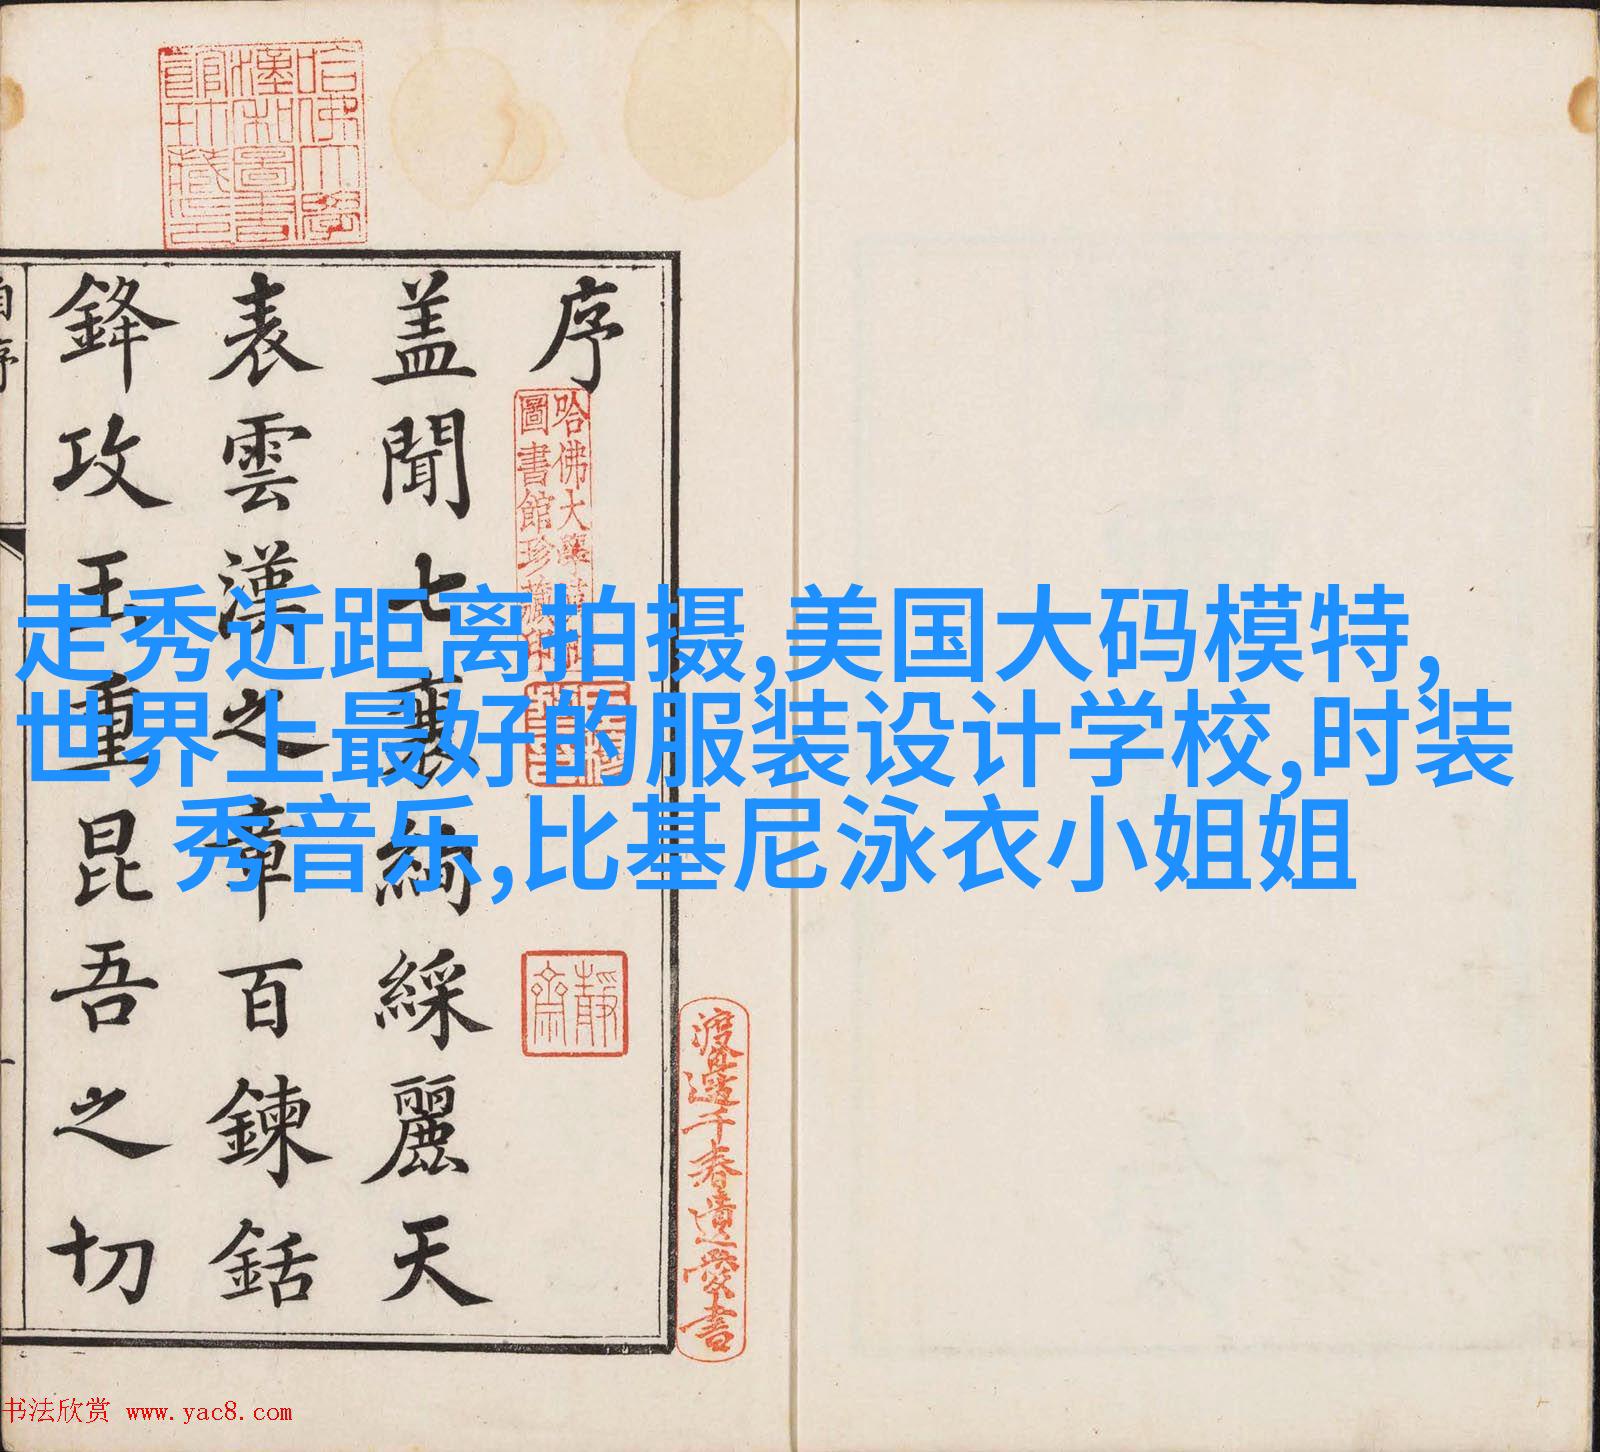 序
蓋聞七襄絢綵麗天
表雲漢之章百鍊銛
鋒攻玉重昆吾之切
自序
哈佛大學漢和圖書館珍藏印
哈佛大學漢和
圖書館珍藏印
靜齋
渡邊千春遺愛書
走秀近距离拍摄,美国大码模特,
世界上最好的服装设计学校,时装
秀音乐,比基尼泳衣小姐姐
书法欣赏 www.yac8.com